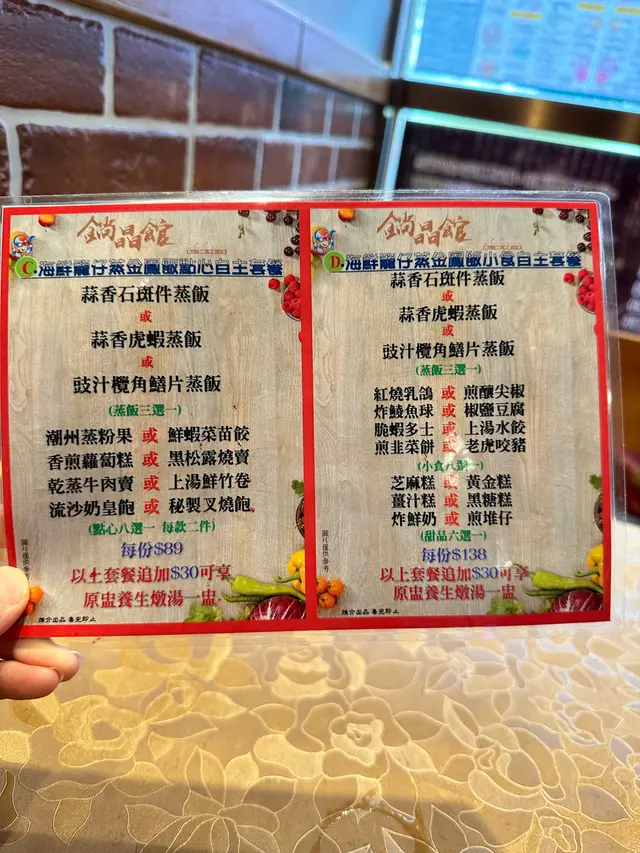 鍋晶館
C.海鮮籠仔蒸金鳳飯點心自主套餐
蒜香石斑件蒸飯
或
蒜香虎蝦蒸飯
或
豉汁欖角鱔片蒸飯
(蒸飯三選一)
潮州蒸粉果 或 鮮蝦菜苗餃
香煎蘿蔔糕 或 黑松露燒賣
乾蒸牛肉賣 或 上湯鮮竹卷
流沙奶皇飽 或 秘製叉燒飽
(點心八選一 每款二件)
每份$89
以上套餐追加$30可享
原盅養生燉湯一盅
推介出品 售完即止
鍋晶館
D.海鮮籠仔蒸金鳳飯小食自主套餐
蒜香石斑件蒸飯
或
蒜香虎蝦蒸飯
或
豉汁欖角鱔片蒸飯
(蒸飯三選一)
紅燒乳鴿 或 煎釀尖椒
炸鯪魚球 或 椒鹽豆腐
脆蝦多士 或 上湯水餃
煎韭菜餅 或 老虎咬豬
(小食八選一)
芝麻糕 或 黃金糕
薑汁糕 或 黑糖糕
炸鮮奶 或 煎堆仔
(甜品六選一)
每份$138
以上套餐追加$30可享
原盅養生燉湯一盅
圖片僅供參考
推介出品 售完即止